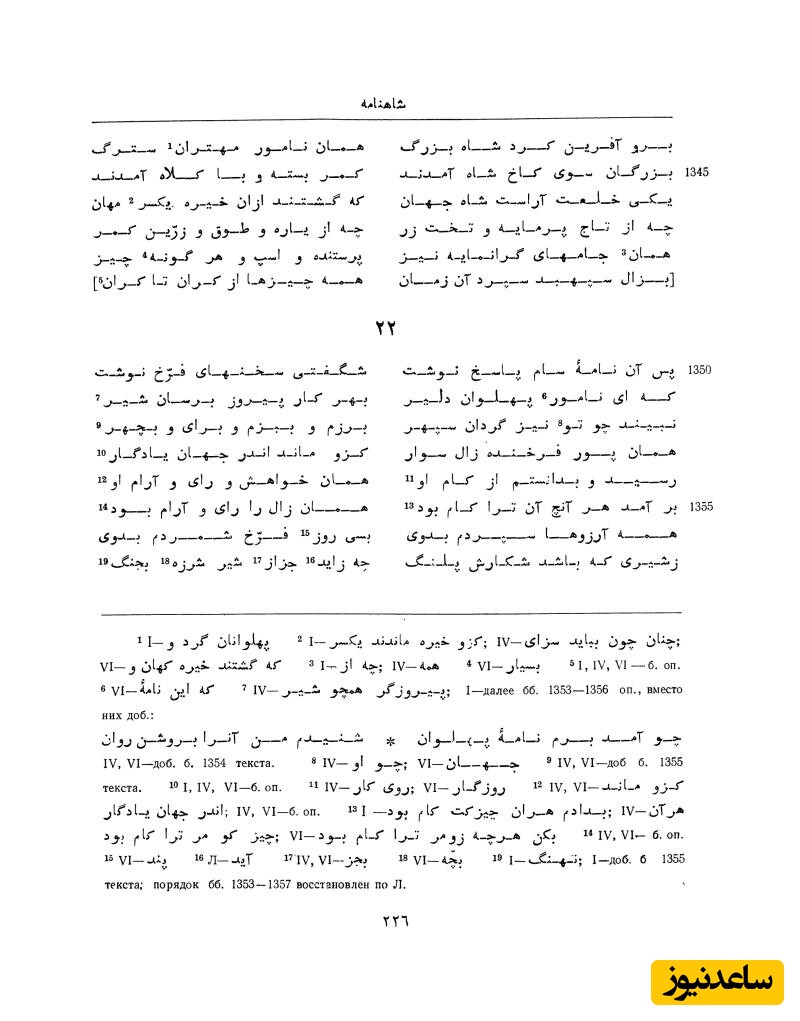 شاهنامه
بـرو آفرین کرد شاه بزرگ همان نامور مهتران¹ سترگ
1345 بزرگان سوی کاخ شاه آمدند کمر بسته و با کلاه آمدند
یکی خلعت آراست شاه جهان که گشتند ازان خیره یکسر² مهان
چه از تاج پرمایه و تخت زر چه از یاره و طوق و زرّین کمر
همان³ جامهای گرانمایه نیز پرستنده و اسپ و هر گونه⁴ چیز
[بزال سپهبد سپرد آن زمان همه چیزها از کران تا کران⁵]
۲۲
1350 پس آن نامهٔ سام پاسخ نوشت شگفتی سخنهای فرّخ نوشت
که ای نامور⁶ پهلوان دلیر بهر کار پیروز برسان شیر⁷
نبیند چو تو⁸ نیز گردان سپهر برزم و ببزم و برای و بچهر⁹
همان پور فرخنده زال سوار کزو ماند اندر جهان یادگار¹⁰
رسید و بدانستم از کام او¹¹ همان خواهش و رای و آرام او¹²
1355 بر آمد هر آنچ آن ترا کام بود¹³ همان زال را رای و آرام بود¹⁴
همه آرزوها سپردم بدوی بسی روز¹⁵ فرّخ شمردم بدوی
زشیری که باشد شکارش پلنگ چه زاید¹⁶ جزاز¹⁷ شیر شرزه¹⁸ بجنگ¹⁹
¹ I—پهلوانان گرد و ² I—کزو خیره ماندند یکسر; IV—چنان چون بباید سزای;
VI—که گشتند خیره کهان و ³ I—چه از; IV—همه ⁴ VI—بسیار ⁵ I, IV, VI—б. оп.
⁶ VI—که این نامهٔ ⁷ IV—پیروزگر همچو شیر; I—далее бб. 1353—1356 оп., вместо
них доб.:
چو آمد برم نامهٔ پهلوان * شنیدم من آنرا بروشن روان
IV, VI—доб. б. 1354 текста. ⁸ IV—چو او; VI—جهان ⁹ IV, VI—доб б. 1355
текста. ¹⁰ I, IV, VI—б. оп. ¹¹ IV—روی کار; VI—روزگار ¹² IV, VI—کزو ماند
اندر جهان یادگار; IV, VI—б. оп. ¹³ I—بدادم هران چیزکت کام بود; IV—هرآن
چیز کو مر ترا کام بود; VI—بکن هرچه زومر ترا کام بود ¹⁴ IV, VI— б. оп.
¹⁵ VI—پند ¹⁶ Л—آید ¹⁷ IV, VI—بجز ¹⁸ VI—بچّه ¹⁹ I—نهنگ; I—доб. б 1355
текста; порядок бб. 1353—1357 восстановлен по Л.
۲۲۶
ساعدنیوز